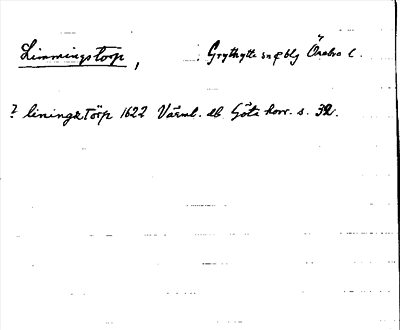 Limmingstorp, Grythytte sn o blg Örebro l.
? liningztörp 1622 Värml. db Göta horr. s. 32.